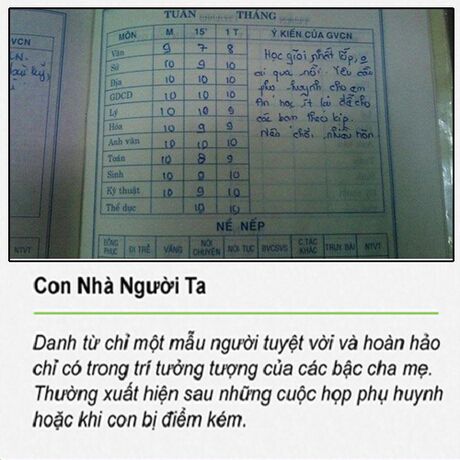 TUẦN ........ THÁNG ........
MÔN M 15' 1 T Ý KIẾN CỦA GVCN
Văn 9 7 8
Sử 10 9 10
Địa 10 10 10
GDCD 10 10 10
Lý 10 10 9
Hóa 10 9 9
Anh văn 10 10 10
Toán 10 8 9
Sinh 10 9 10
Kỹ thuật 10 9 10
Thể dục 10 10
Học giỏi nhất lớp,
ai qua nổi. Yêu cầu
phụ huynh cho em
ăn học ít lại để cho
các bạn theo kịp.
Nên chơi nhiều hơn.
NỀ NẾP
ĐỒNG PHỤC ĐI TRỄ VẮNG NÓI CHUYỆN NÓI TỤC BVCSVS C.TÁC KHÁC TRUY BÀI NTVT
VCN
NTVT
Con Nhà Người Ta
Danh từ chỉ một mẫu người tuyệt vời và hoàn hảo
chỉ có trong trí tưởng tượng của các bậc cha mẹ.
Thường xuất hiện sau những cuộc họp phụ huynh
hoặc khi con bị điểm kém.